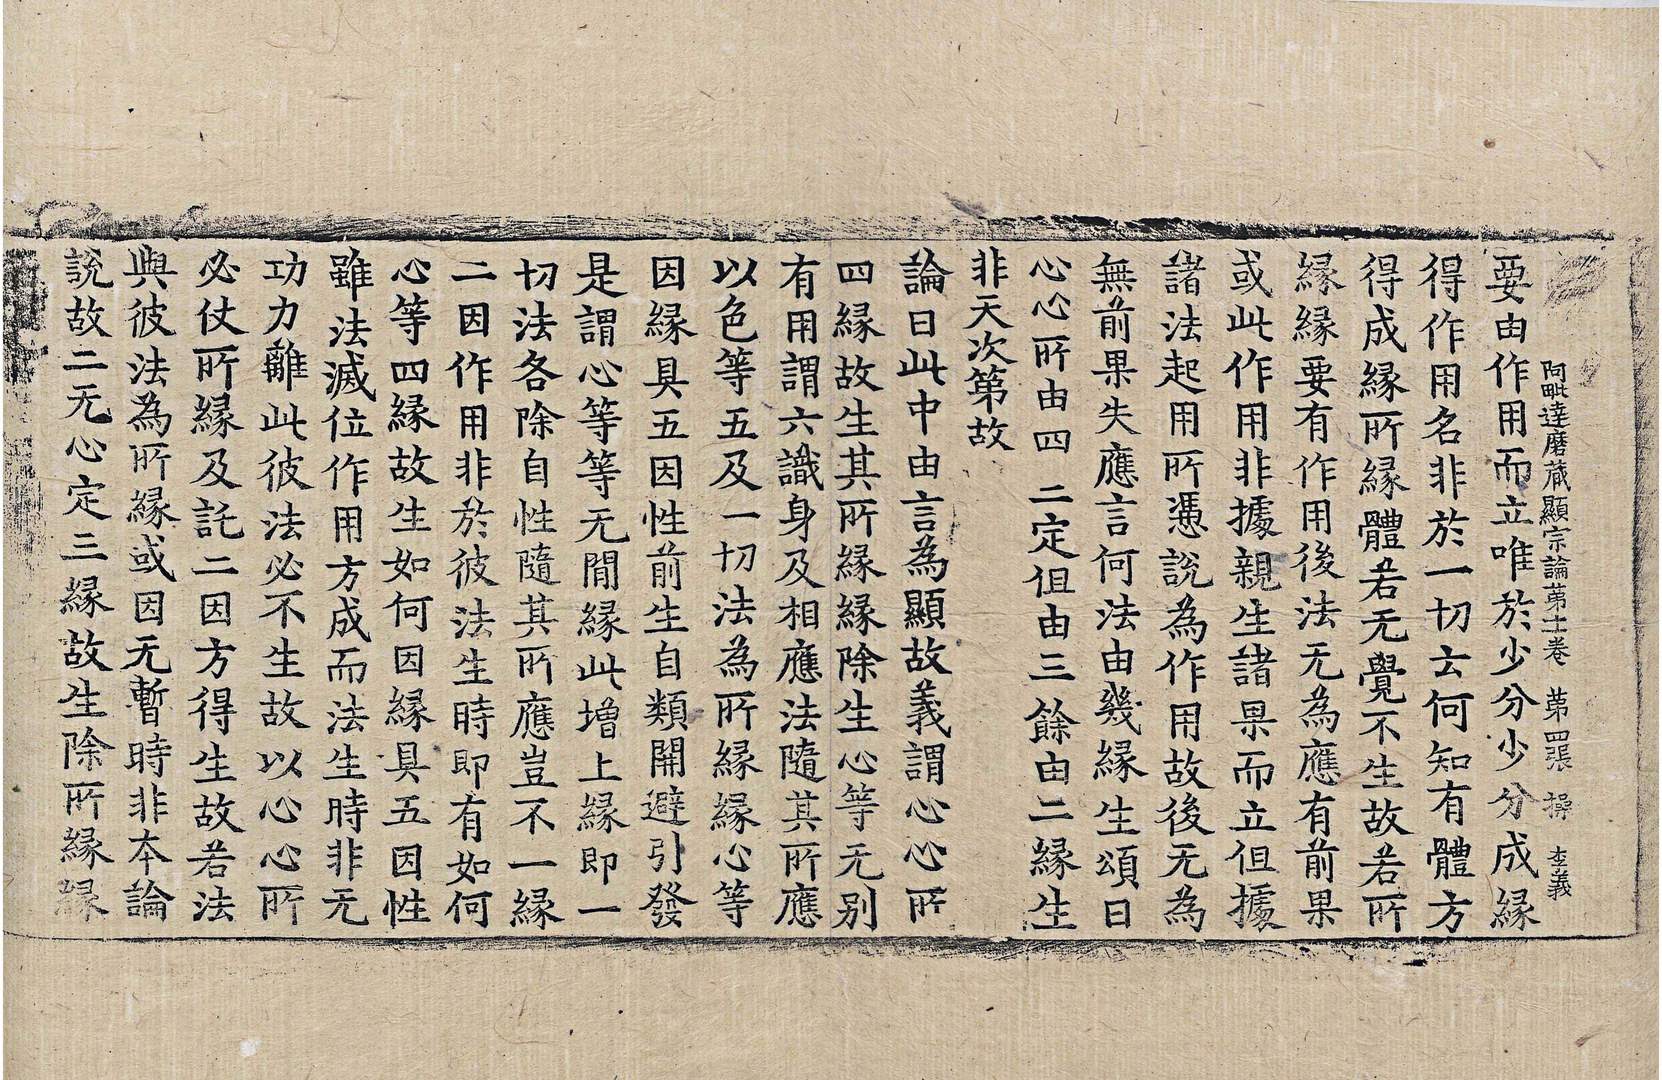 阿毗達磨藏顯宗論苐十二卷 苐四張 操 李義
要由作用而立唯於少分少分成縁
得作用名非於一切云何知有體方
得成縁所縁體若无覺不生故若所
縁縁要有作用後法无為應有前果
或此作用非據親生諸果而立但據
諸法起用所憑說為作用故後无為
無前果失應言何法由幾縁生頌曰
心心所由四 二定但由三 餘由二縁生
非天次第故
論曰此中由言為顯故義謂心心所
四縁故生其所縁縁除生心等无別
有用謂六識身及相應法隨其所應
以色等五及一切法為所縁縁心等
因縁具五因性前生自類開避引發
是謂心等等无間縁此增上縁即一
切法各除自性隨其所應豈不一縁
二因作用非於彼法生時即有如何
心等四縁故生如何因縁具五因性
雖法滅位作用方成而法生時非无
功力離此彼法必不生故以心心所
必仗所縁及託二因方得生故若法
與彼法為所縁或因无暫時非本論
說故二无心定三縁故生除所縁縁